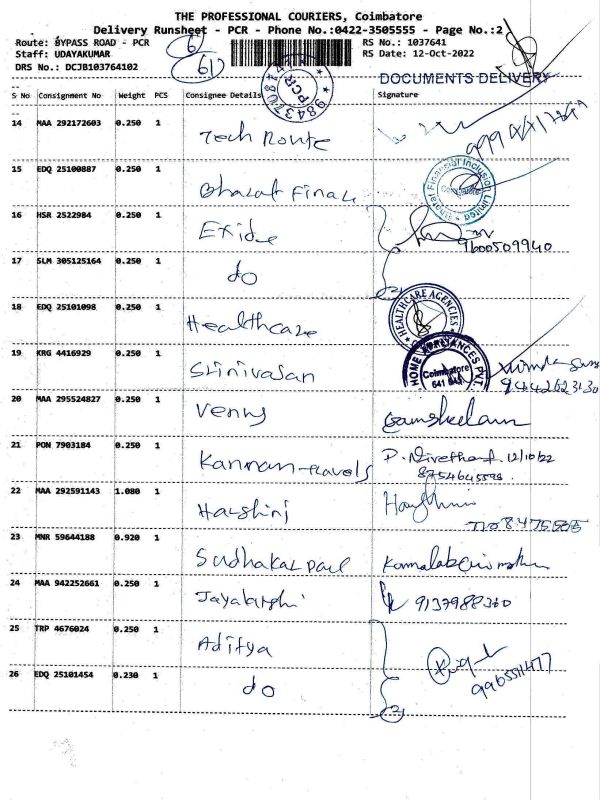 THE PROFESSIONAL COURIERS, Coimbatore
Delivery Runsheet - PCR - Phone No.:0422-3505555 - Page No.:2
Route: BYPASS ROAD - PCR
RS No.: 1037641
Staff: UDAYAKUMAR
RS Date: 12-Oct-2022
DRS No.: DCJB103764102
6
61
PCR
DOCUMENTS DELIVERY
S No Consignment No Weight PCS Consignee Details Signature
14 MAA 292172603 0.250 1 Tech Route
15 EDQ 25100887 0.250 1 Bharat Finac
Bharat Financial Inclusion Limited
Coimbatore
16 HSR 2522984 0.250 1 Exide
9600509940
17 SLM 305125164 0.250 1 do
18 EDQ 25101098 0.250 1 Healthcare
HEALTHCARE AGENCIES
19 KRG 4416929 0.250 1 Srinivasan
HOME APPLIANCES PVT.
Coimbatore
641 045
9442623130
20 MAA 295524827 0.250 1 Venus
21 PON 7903184 0.250 1 Kannan travels P. Nivetha 12/10/22
8754645598
22 MAA 292591143 1.080 1 Harshini Harshini
23 MNR 59644188 0.920 1 Sudhakar paul
24 MAA 942252661 0.250 1 9137988360
25 TRP 4676024 0.250 1 Aditya
26 EDQ 25101454 0.230 1 do
9965511477